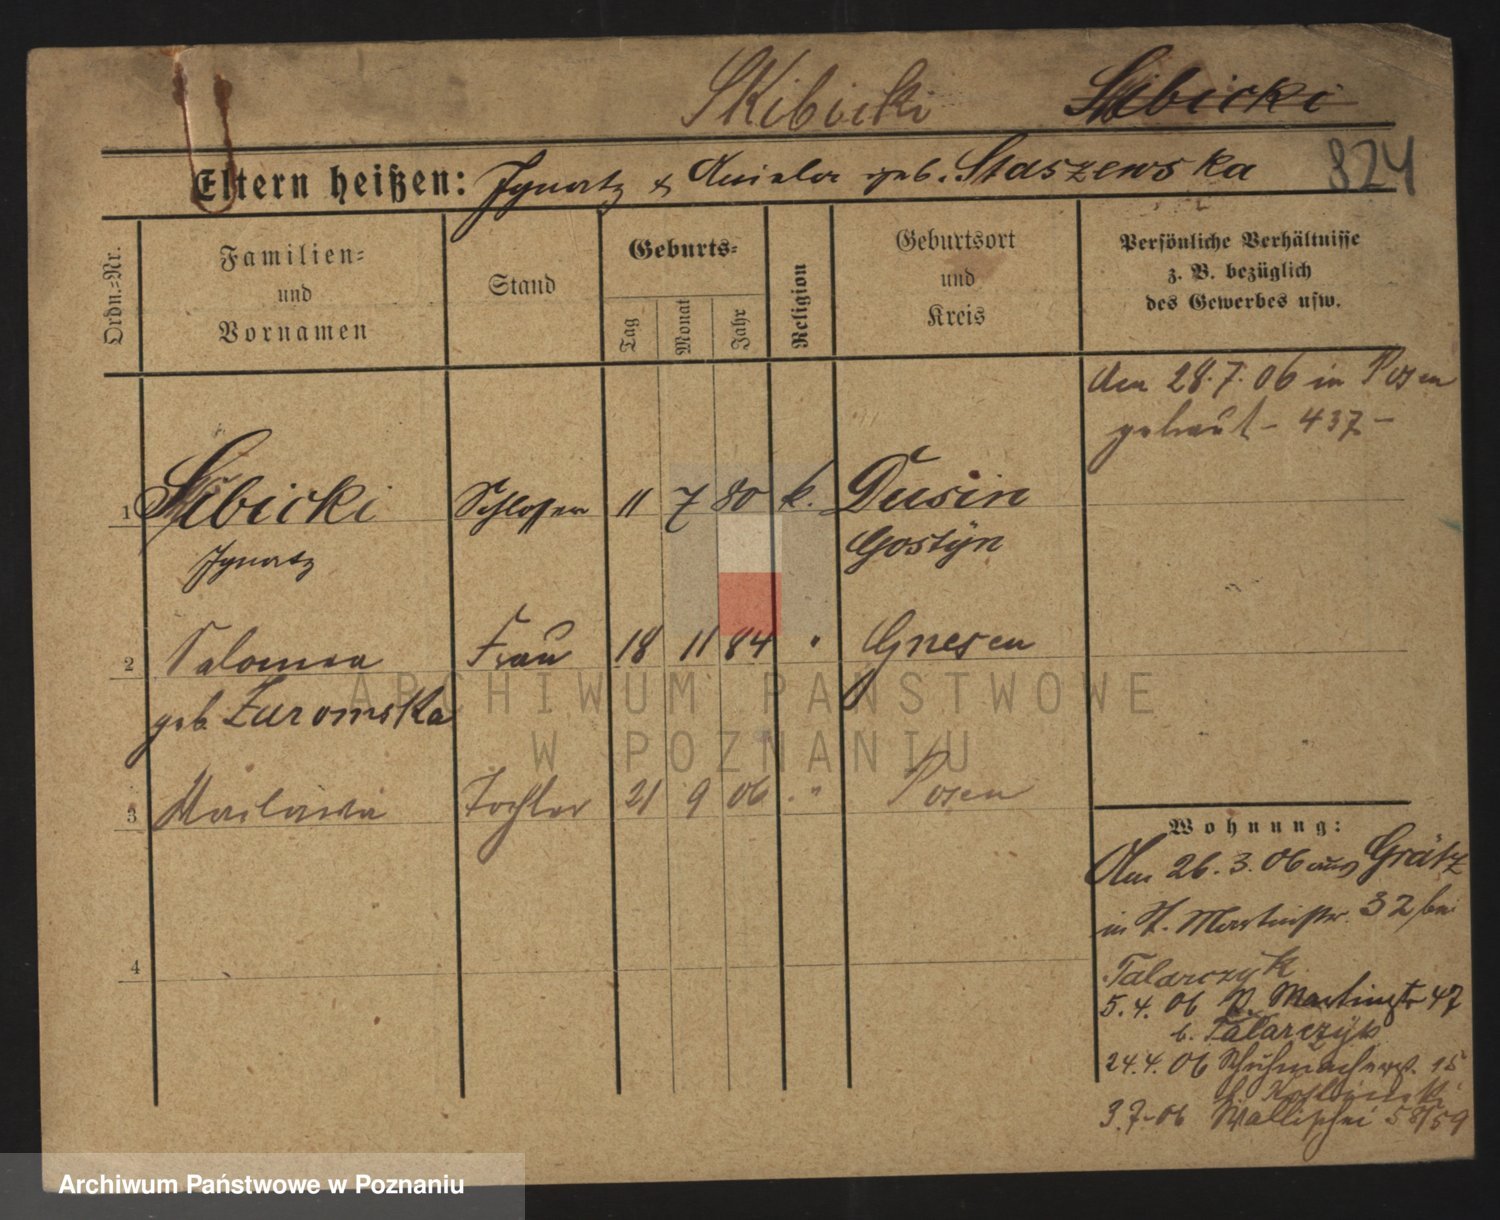 Skibicki Sibicki
824
Eltern heißen: Ignatz & Aniela geb. Staszewska
Ordn.-Nr.
Familien-
und
Vornamen
Stand
Geburts-
Tag
Monat
Jahr
Religion
Geburtsort
und
Kreis
Persönliche Verhältnisse
z. B. bezüglich
des Gewerbes usw.
Am 28.7.06 in Posen
getraut - 437 -
1 Sibicki Schlosser 11 7 80 k. Dusin
Ignatz Gostÿn
2 Salomea Frau 18 11 84 " Gnesen
geb. Zuromska
3 Tochter 21 9 06 " Posen
4
Wohnung:
Am 26.3.06 aus Grätz
in St. Martinstr. 32 bei
Talarczyk
5.4.06 Martinstr 47
b. Talarczÿk
24.4.06 Schuhmacherstr. 15
3.7.06 Wallischei 58/59
ARCHIWUM PAŃSTWOWE
W POZNANIU
Archiwum Państwowe w Poznaniu